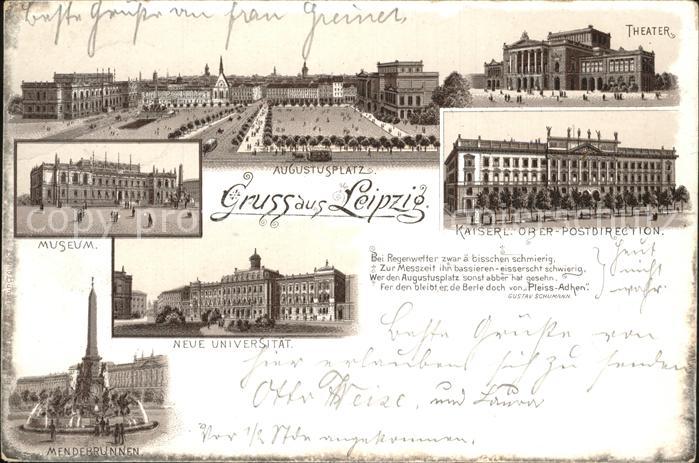 beste Grüße an frau Greiner.
THEATER.
AUGUSTUSPLATZ.
MUSEUM.
Gruss aus Leipzig.
KAISERL. OBER-POSTDIRECTION.
Bei Regenwetter zwar ä bisschen schmierig,
Zur Messzeit ihn bassieren-eisserscht schwierig,
Wer den Augustusplatz sonst abber hat gesehn,
Fer den bleibt er, de Berle doch von „Pleiss-Adhen“.
GUSTAV SCHUMANN.
heut
nicht
wahr.
NEUE UNIVERSITÄT.
MENDEBRUNNEN.
Beste Grüße von
hier erlauben sich zu senden
Otto Weise, und Laura
Vor 1/2 Stde angekommen.